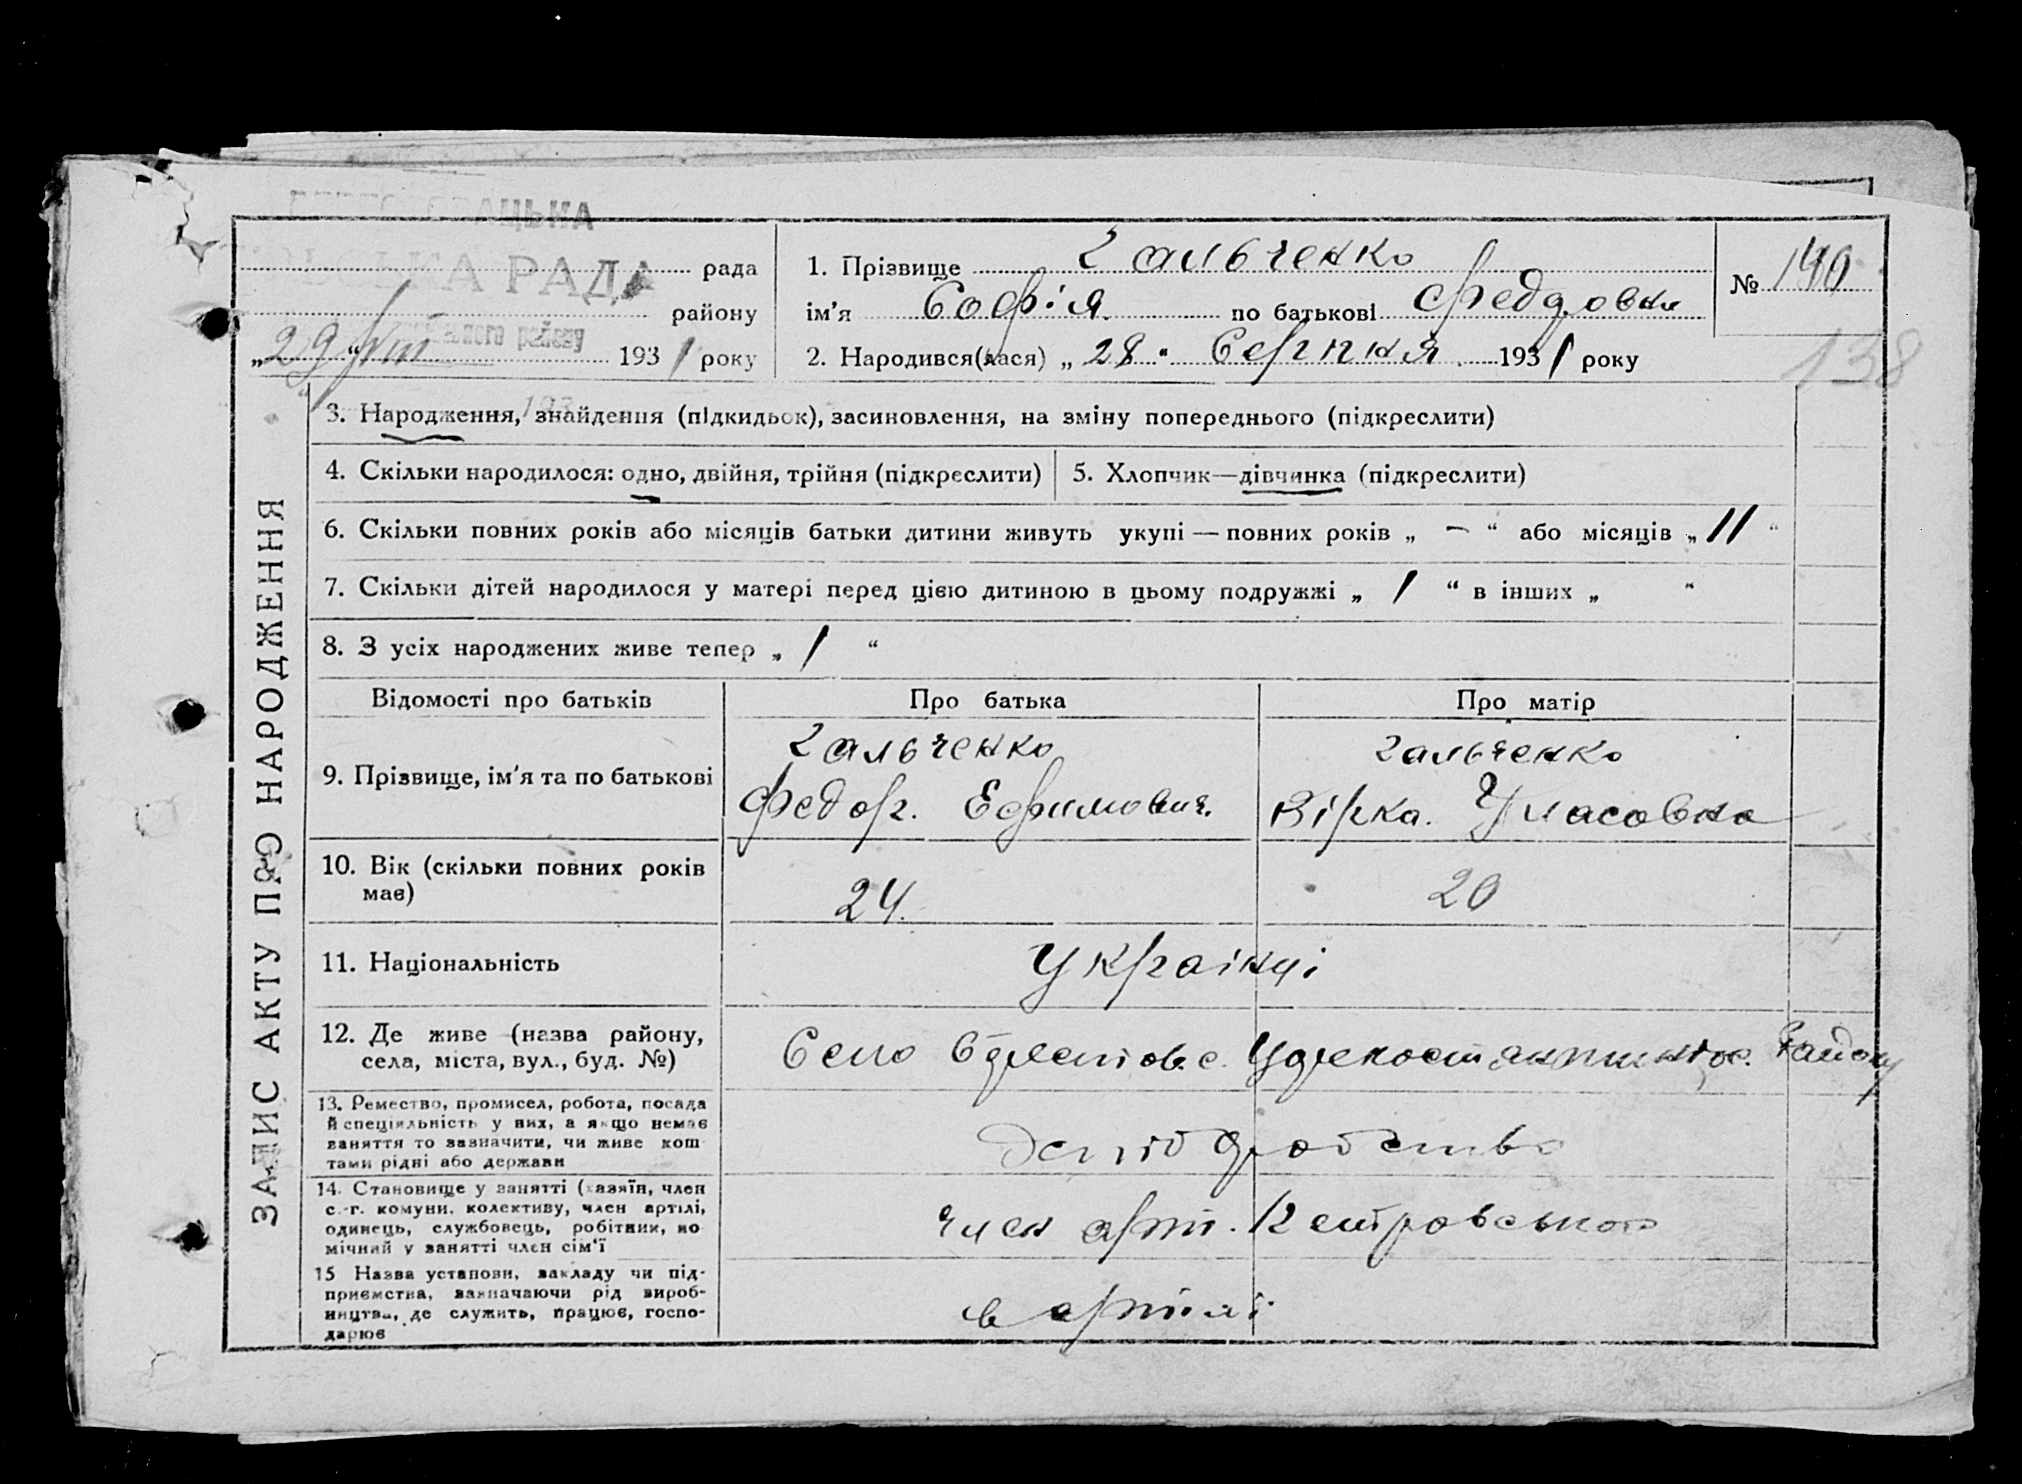 ЦЬКА
РАДА
рада
1. Прізвище Гальченко
№ 140
району
ім'я Софія по батькові Федоровна
району
„29“ VIII 1931 року
2. Народився(лася) „28“ Серпня 1931 року
138
3. Народження, знайдення (підкидьок), засиновлення, на зміну попереднього (підкреслити)
4. Скільки народилося: одно, двійня, трійня (підкреслити)
5. Хлопчик—дівчинка (підкреслити)
6. Скільки повних років або місяців батьки дитини живуть укупі — повних років „ — “ або місяців „ 11 “
7. Скільки дітей народилося у матері перед цією дитиною в цьому подружжі „ 1 “ в інших „ “
8. З усіх народжених живе тепер „ 1 “
ЗАПИС АКТУ ПРО НАРОДЖЕННЯ
Відомості про батьків
Про батька
Про матір
9. Прізвище, ім'я та по батькові
Гальченко
Федор. Ефимович.
Гальченко
Вірка. Власовна
10. Вік (скільки повних років
має)
24.
20
11. Національність
Українці
12. Де живе (назва району,
села, міста, вул., буд. №)
Село району
13. Ремество, промисел, робота, посада
й спеціяльність у них, а якщо немає
заняття то зазначити, чи живе кош
тами рідні або держави
14. Становище у занятті (хазяїн, член
с.-г. комуни, колективу, член артілі,
одинець, службовець, робітник, по
мічний у занятті член сім'ї
член арт. Петровського
15 Назва установи, закладу чи під-
приємства, зазначаючи рід вироб-
ництва, де служить, працює, госпо-
дарює
в артілі